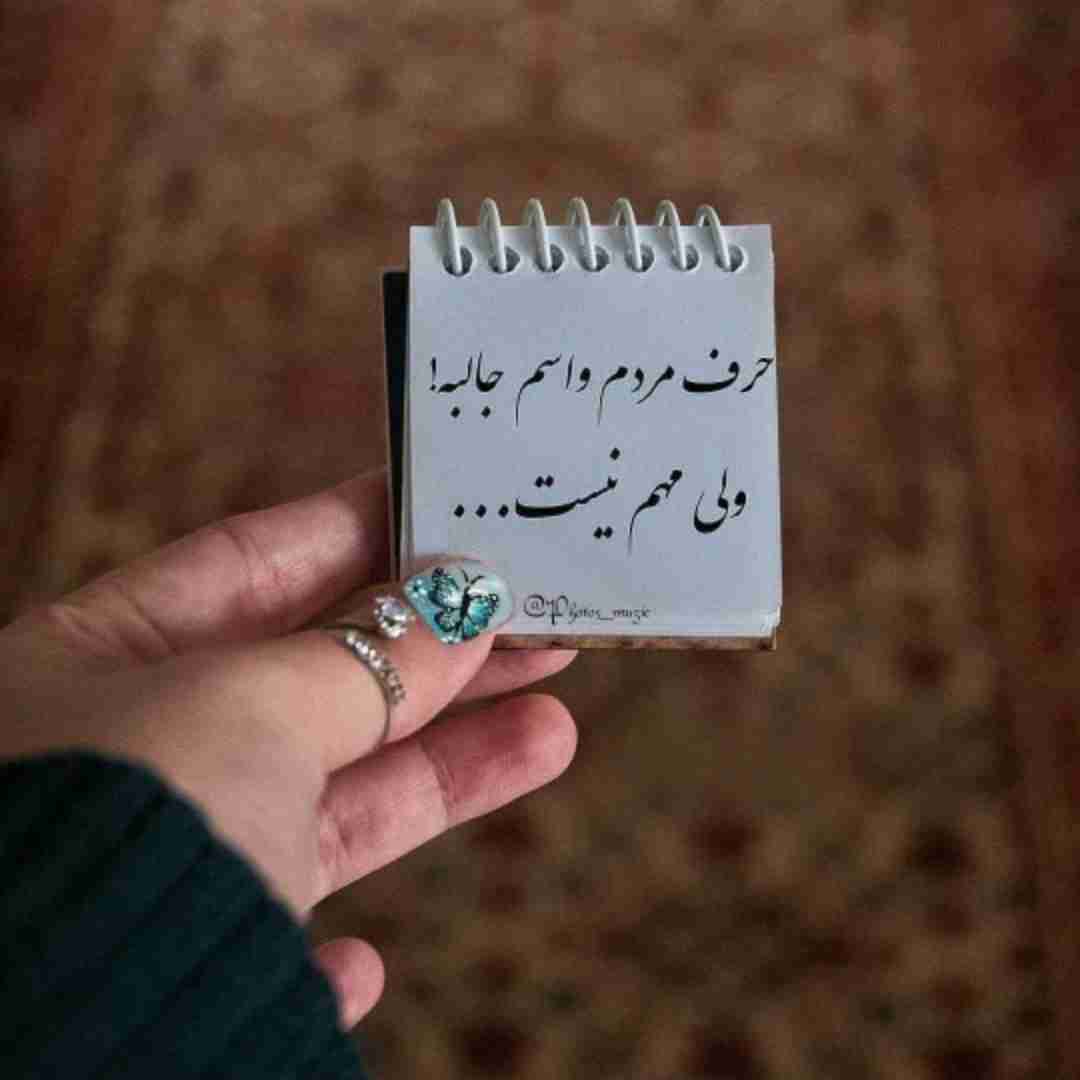 حرف مردم واسم جالبه!
ولی مهم نیست...
@Photos_muzic